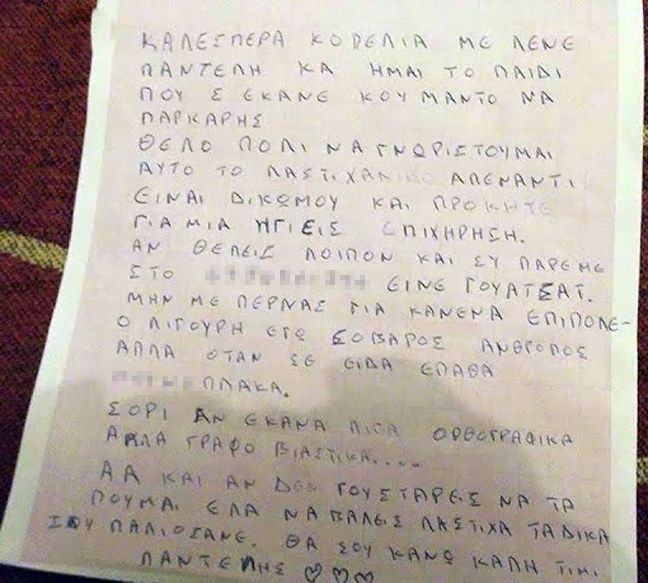 ΚΑΛΕΣΠΕΡΑ ΚΟΠΕΛΙΑ ΜΕ ΛΕΝΕ
ΠΑΝΤΕΛΗ ΚΑ ΗΜΑΙ ΤΟ ΠΑΙΔΙ
ΠΟΥ Σ ΕΚΑΝΕ ΚΟΥΜΑΝΤΟ ΝΑ
ΠΑΡΚΑΡΗΣ
ΘΕΛΟ ΠΟΛΙ ΝΑ ΓΝΩΡΙΣΤΟΥΜΑΙ
ΑΥΤΟ ΤΟ ΛΑΣΤΙΧΑΔΙΚΟ ΑΠΕΝΑΝΤΙ
ΕΙΝΑΙ ΔΙΚΩΜΟΥ ΚΑΙ ΠΡΟΚΗΤΕ
ΓΙΑ ΜΙΑ ΗΓΙΕΙΣ ΕΠΙΧΗΡΗΣΗ.
ΑΝ ΘΕΛΕΙΣ ΛΟΙΠΟΝ ΚΑΙ ΣΥ ΠΑΡΕ ΜΕ
ΣΤΟ ΕΙΝΕ ΓΟΥΑΤΣΑΤ.
ΜΗΝ ΜΕ ΠΕΡΝΑΣ ΓΙΑ ΚΑΝΕΝΑ ΕΠΙΠΟΛΕ-
Ο ΛΙΓΟΥΡΗ ΕΓΩ ΣΟΒΑΡΟΣ ΑΝΘΡΟΠΟΣ
ΑΠΛΑ ΟΤΑΝ ΣΕ ΕΙΔΑ ΕΠΑΘΑ
ΠΛΑΚΑ.
ΣΟΡΙ ΑΝ ΕΚΑΝΑ ΛΙΓΑ ΟΡΘΟΓΡΑΦΙΚΑ
ΑΛΛΑ ΓΡΑΦΟ ΒΙΑΣΤΙΚΑ.....
ΑΑ ΚΑΙ ΑΝ ΔΕΣ ΓΟΥΣΤΑΡΕΙΣ ΝΑ ΤΑ
ΠΟΥΜΑΙ ΕΛΑ ΝΑ ΒΑΛΕΙΣ ΛΑΣΤΙΧΑ ΤΑ ΔΙΚΑ
ΣΟΥ ΠΑΛΙΟΣΑΝΕ. ΘΑ ΣΟΥ ΚΑΝΩ ΚΑΛΗ ΤΙΜΙ
ΠΑΝΤΕΛΗΣ ♡♡♡